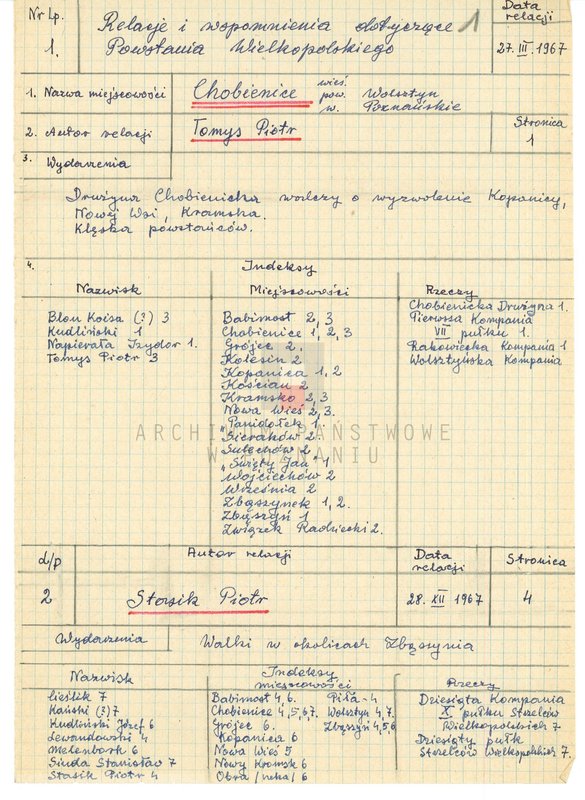 Nr Lp.
1.
Relacje i wspomnienia dotyczące
Powstania Wielkopolskiego
1
Data
relacji
27. III. 1967
1. Nazwa miejscowości
Chobienice
wieś.
pow. Wolsztyn
w. Poznańskie
2. Autor relacji
Tomys Piotr
Stronica
1
3.
Wydarzenia
Drużyna Chobienicka walczy o wyzwolenie Kopanicy,
Nowej Wsi, Kramska.
Klęska powstańców.
4.
Indeksy
Nazwisk
Blou Koisa (?) 3
Kudliński 1
Napierała Izydor 1.
Tomys Piotr 3
Miejscowości
Babimost 2, 3
Chobienice 1, 2, 3
Grójec 2.
Kolesin 2
Kopanica 1, 2
Kościan 2
Kramsko 2, 3
Nowa Wieś 2, 3.
"Panidołek 1
Sieraków 2
Sulechów 2
"Święty Jan" 1
Wojciechów 2
Września 2
Zbąszynek 1, 2.
Zbąszyń 1
Związek Radziecki 2.
Rzeczy
Chobienicka Drużyna 1.
Pierwsza Kompania
VII pułku 1.
Rakowiecka Kompania 1
Wolsztyńska Kompania
ARCHIWUM PAŃSTWOWE
W POZNANIU
d/p
2
Autor relacji
Stasik Piotr
Data
relacji
28. XII 1967
Stronica
4
Wydarzenia
Walki w okolicach Zbąszynia
Nazwisk
Cieślik 7
Kański (?) 7
Kudliński Józef 6
Lewandowski 4
Melenbork 6
Siuda Stanisław 7
Stasik Piotr 4
Indeksy
miejscowości
Babimost 4, 6.
Chobienice 4, 5, 6, 7.
Grójec 6.
Kopanica 6
Nowa Wieś 5
Nowy Kromsk 6
Obra /rzeka/ 6
Piła - 4
Wolsztyn 4, 7.
Zbąszyń 4, 5, 6
Rzeczy
Dziesiąta Kompania
X. pułku Strzelców
Wielkopolskich 7
Dziesiąty pułk
Strzelców Wielkopolskich 7.